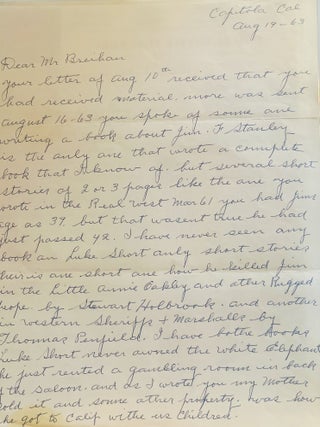 Capitola Cal
Aug 19-63
Dear Mr Breihan
your letter of aug 10th received that you
had received material. more was sent
august 16-63 you spoke of some one
writing a book about Jim. F Stanley
is the only one that wrote a complete
book that I know of. but several short
stories of 2 or 3 pages like the one you
wrote in the Real west Mar 61 you had Jim
age as 37. but that wasent true he had
just passed 42. I have never seen any
book on Luke Short only short stories
their is one short one how he killed Jim
in the Little Annie Oakley and other Rugged
People. by Stewart Holbrook. and another
in western Sheriffs + Marshalls by
Thomas Penfield. I have bothe books
Luke Short never owned the white Elephant
he just rented a gambling room in back
of the saloon. and as I wrote you my Mother
sold it and some other property. was how
she got to Calif withe us children.